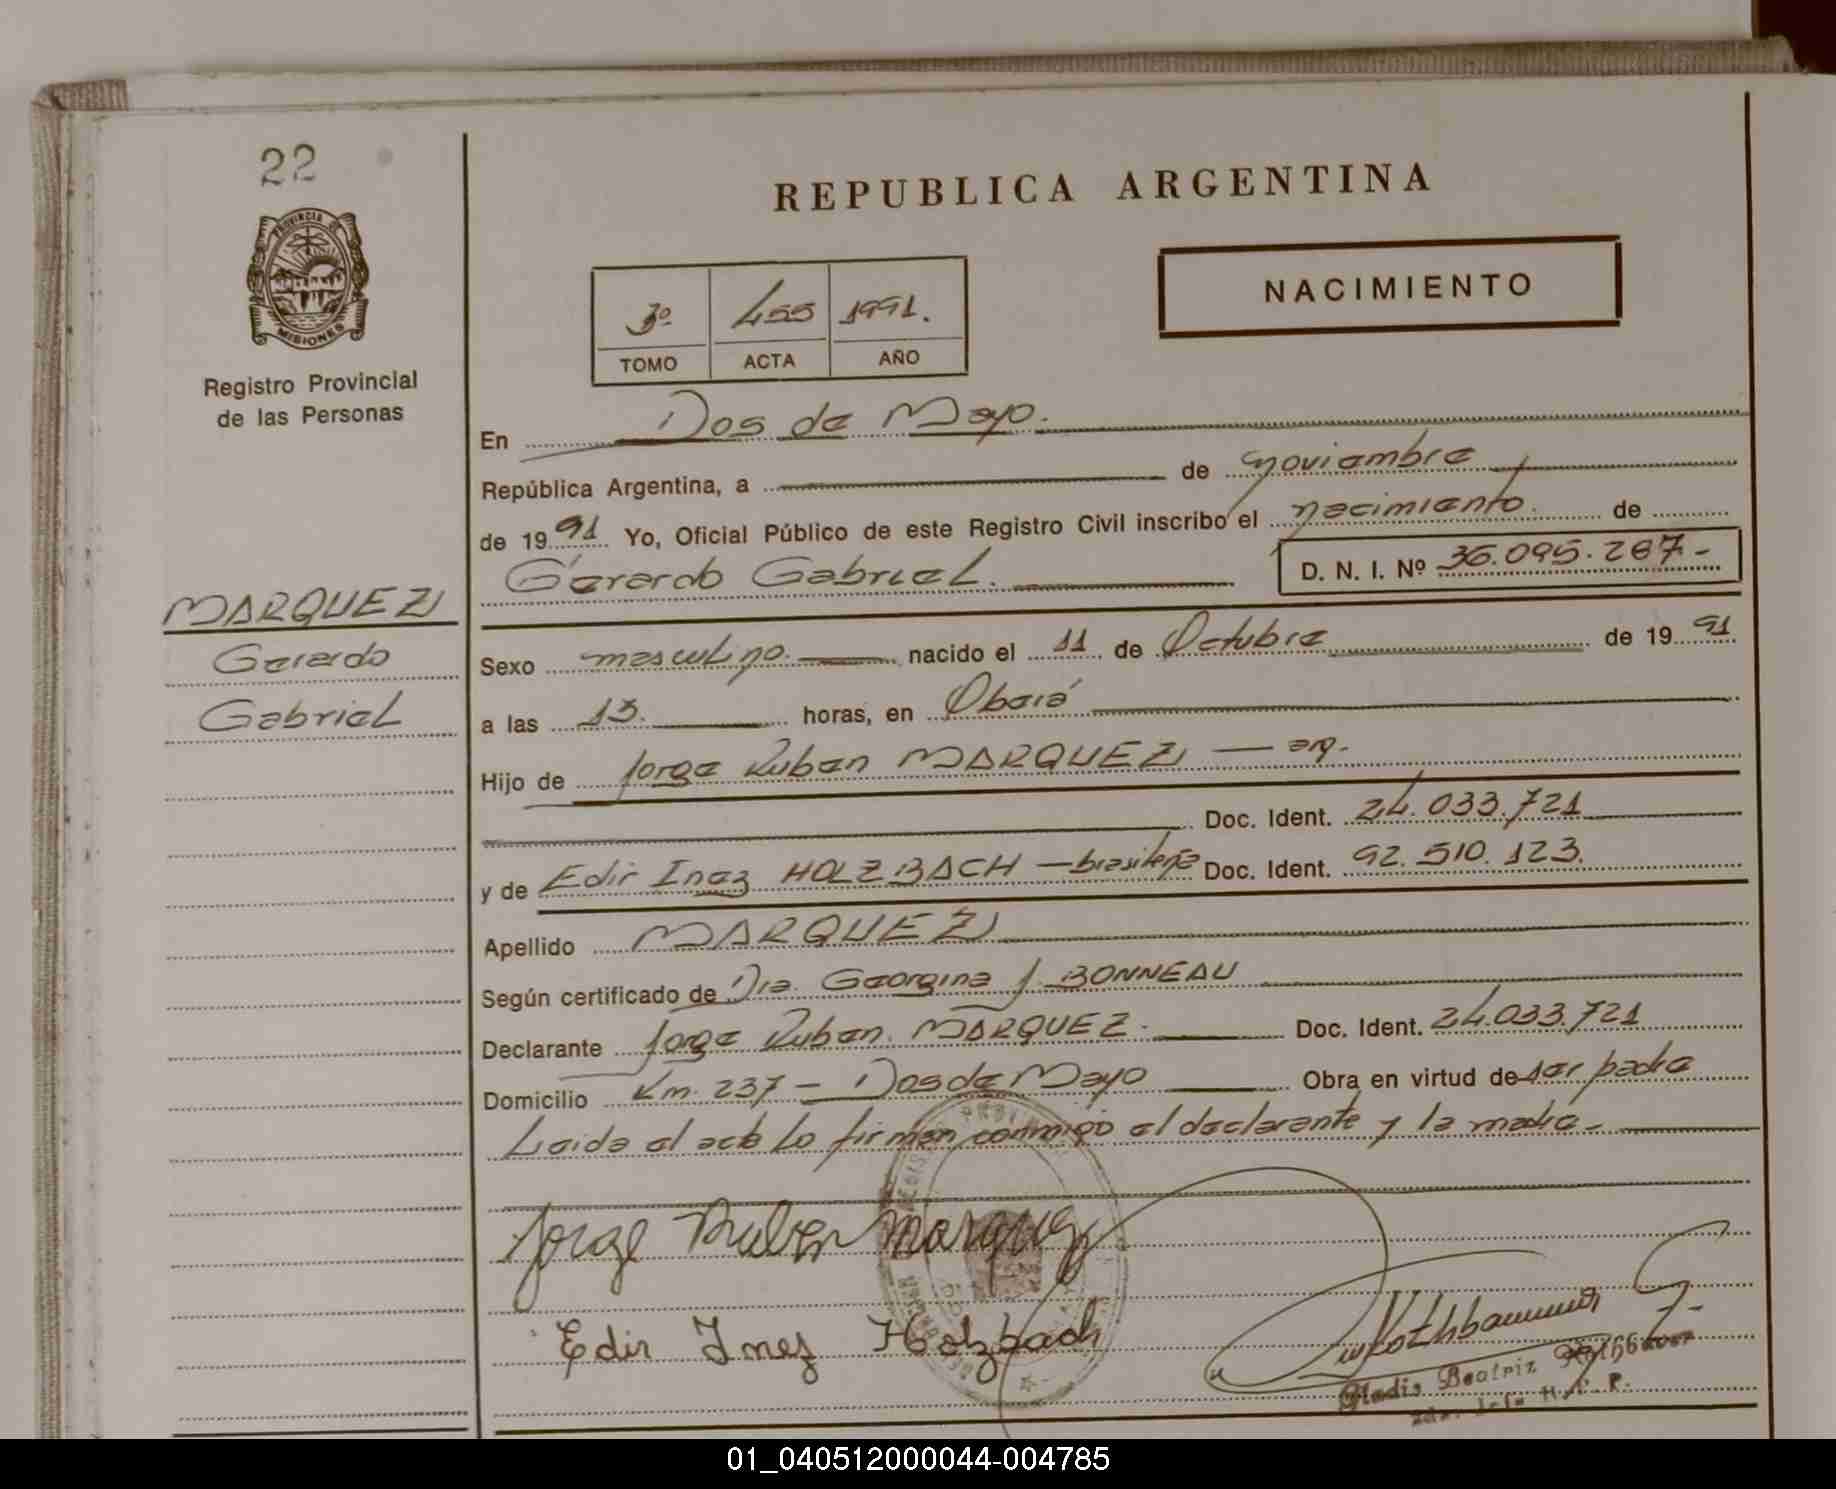 22
PROVINCIA DE
MISIONES
Registro Provincial
de las Personas
MARQUEZ
Gerardo
Gabriel
REPUBLICA ARGENTINA
3º 455 1991.
TOMO ACTA AÑO
NACIMIENTO
En Dos de Mayo.
República Argentina, a de noviembre
de 1991 Yo, Oficial Público de este Registro Civil inscribo el nacimiento. de
Gerardo Gabriel. D. N. I. Nº 36.095.287.-
Sexo masculino. nacido el 11 de Octubre de 1991
a las 13. horas, en Oberá
Hijo de Jorge Ruben MARQUEZ — arg.
Doc. Ident. 24.033.721
y de Edir Inez HOLZBACH — brasileña Doc. Ident. 92.510.123.
Apellido MARQUEZ
Según certificado de Dra. Georgina J. BONNEAU
Declarante Jorge Ruben. MARQUEZ. Doc. Ident. 24.033.721
Domicilio Km. 237 — Dos de Mayo Obra en virtud de ser padre
Leida el acta lo firman conmigo el declarante y la madre.-
Jorge Ruben Marquez
Edir Inez Holzbach
Gladis Beatriz Rothbauer
01_040512000044-004785